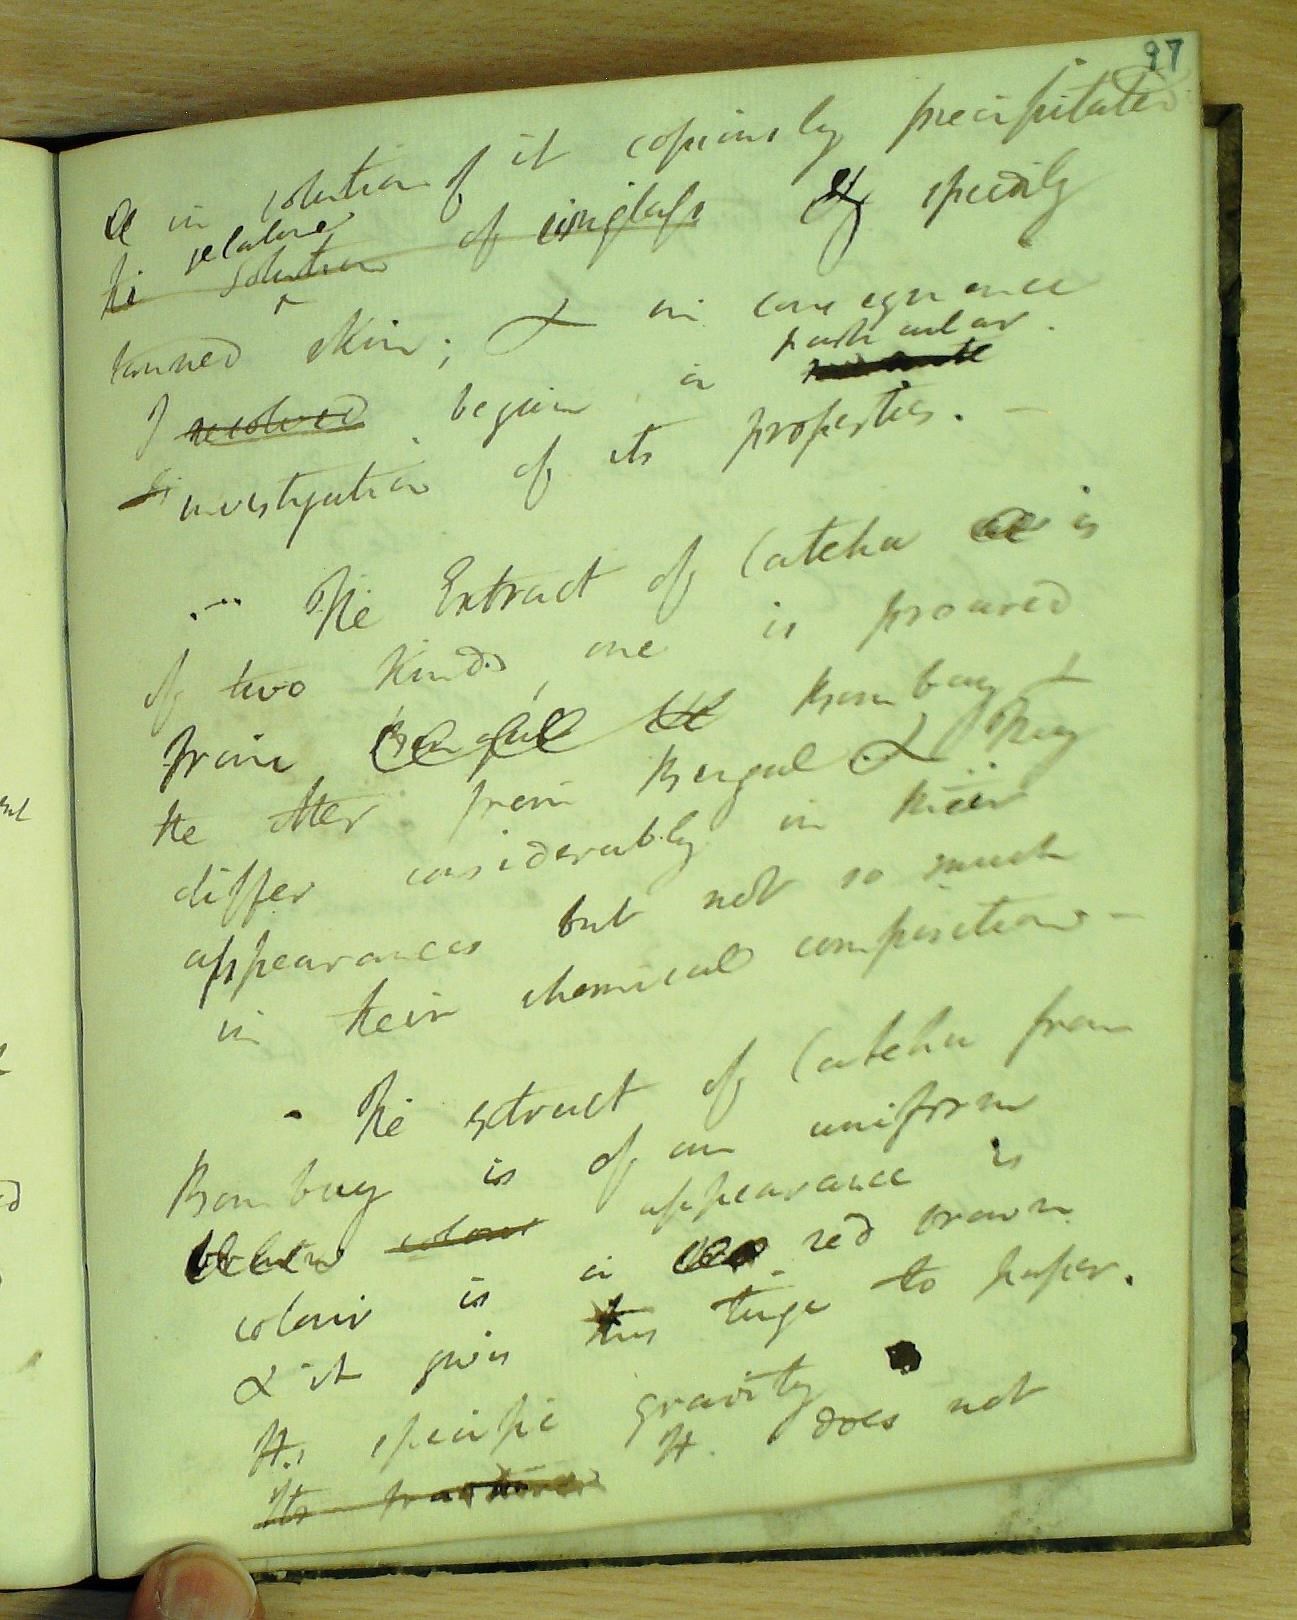 97
in solution of it copiously precipitated
gelatine
the solution of isinglass & speedily
tanned skin; & in consequence
particular
I resolved began a minute
investigation of its properties. —
The Extract of Catechu is
of two kinds, one is procured
from Bengal Bombay &
the other from Bengal & they
differ considerably in their
appearances but not so much
in their chemical composition —
The extract of Catechu from
Bombay is of an uniform
colour appearance is
colour is a red brown
& it gives this tinge to paper.
Its specific gravity
Its fracture It does not